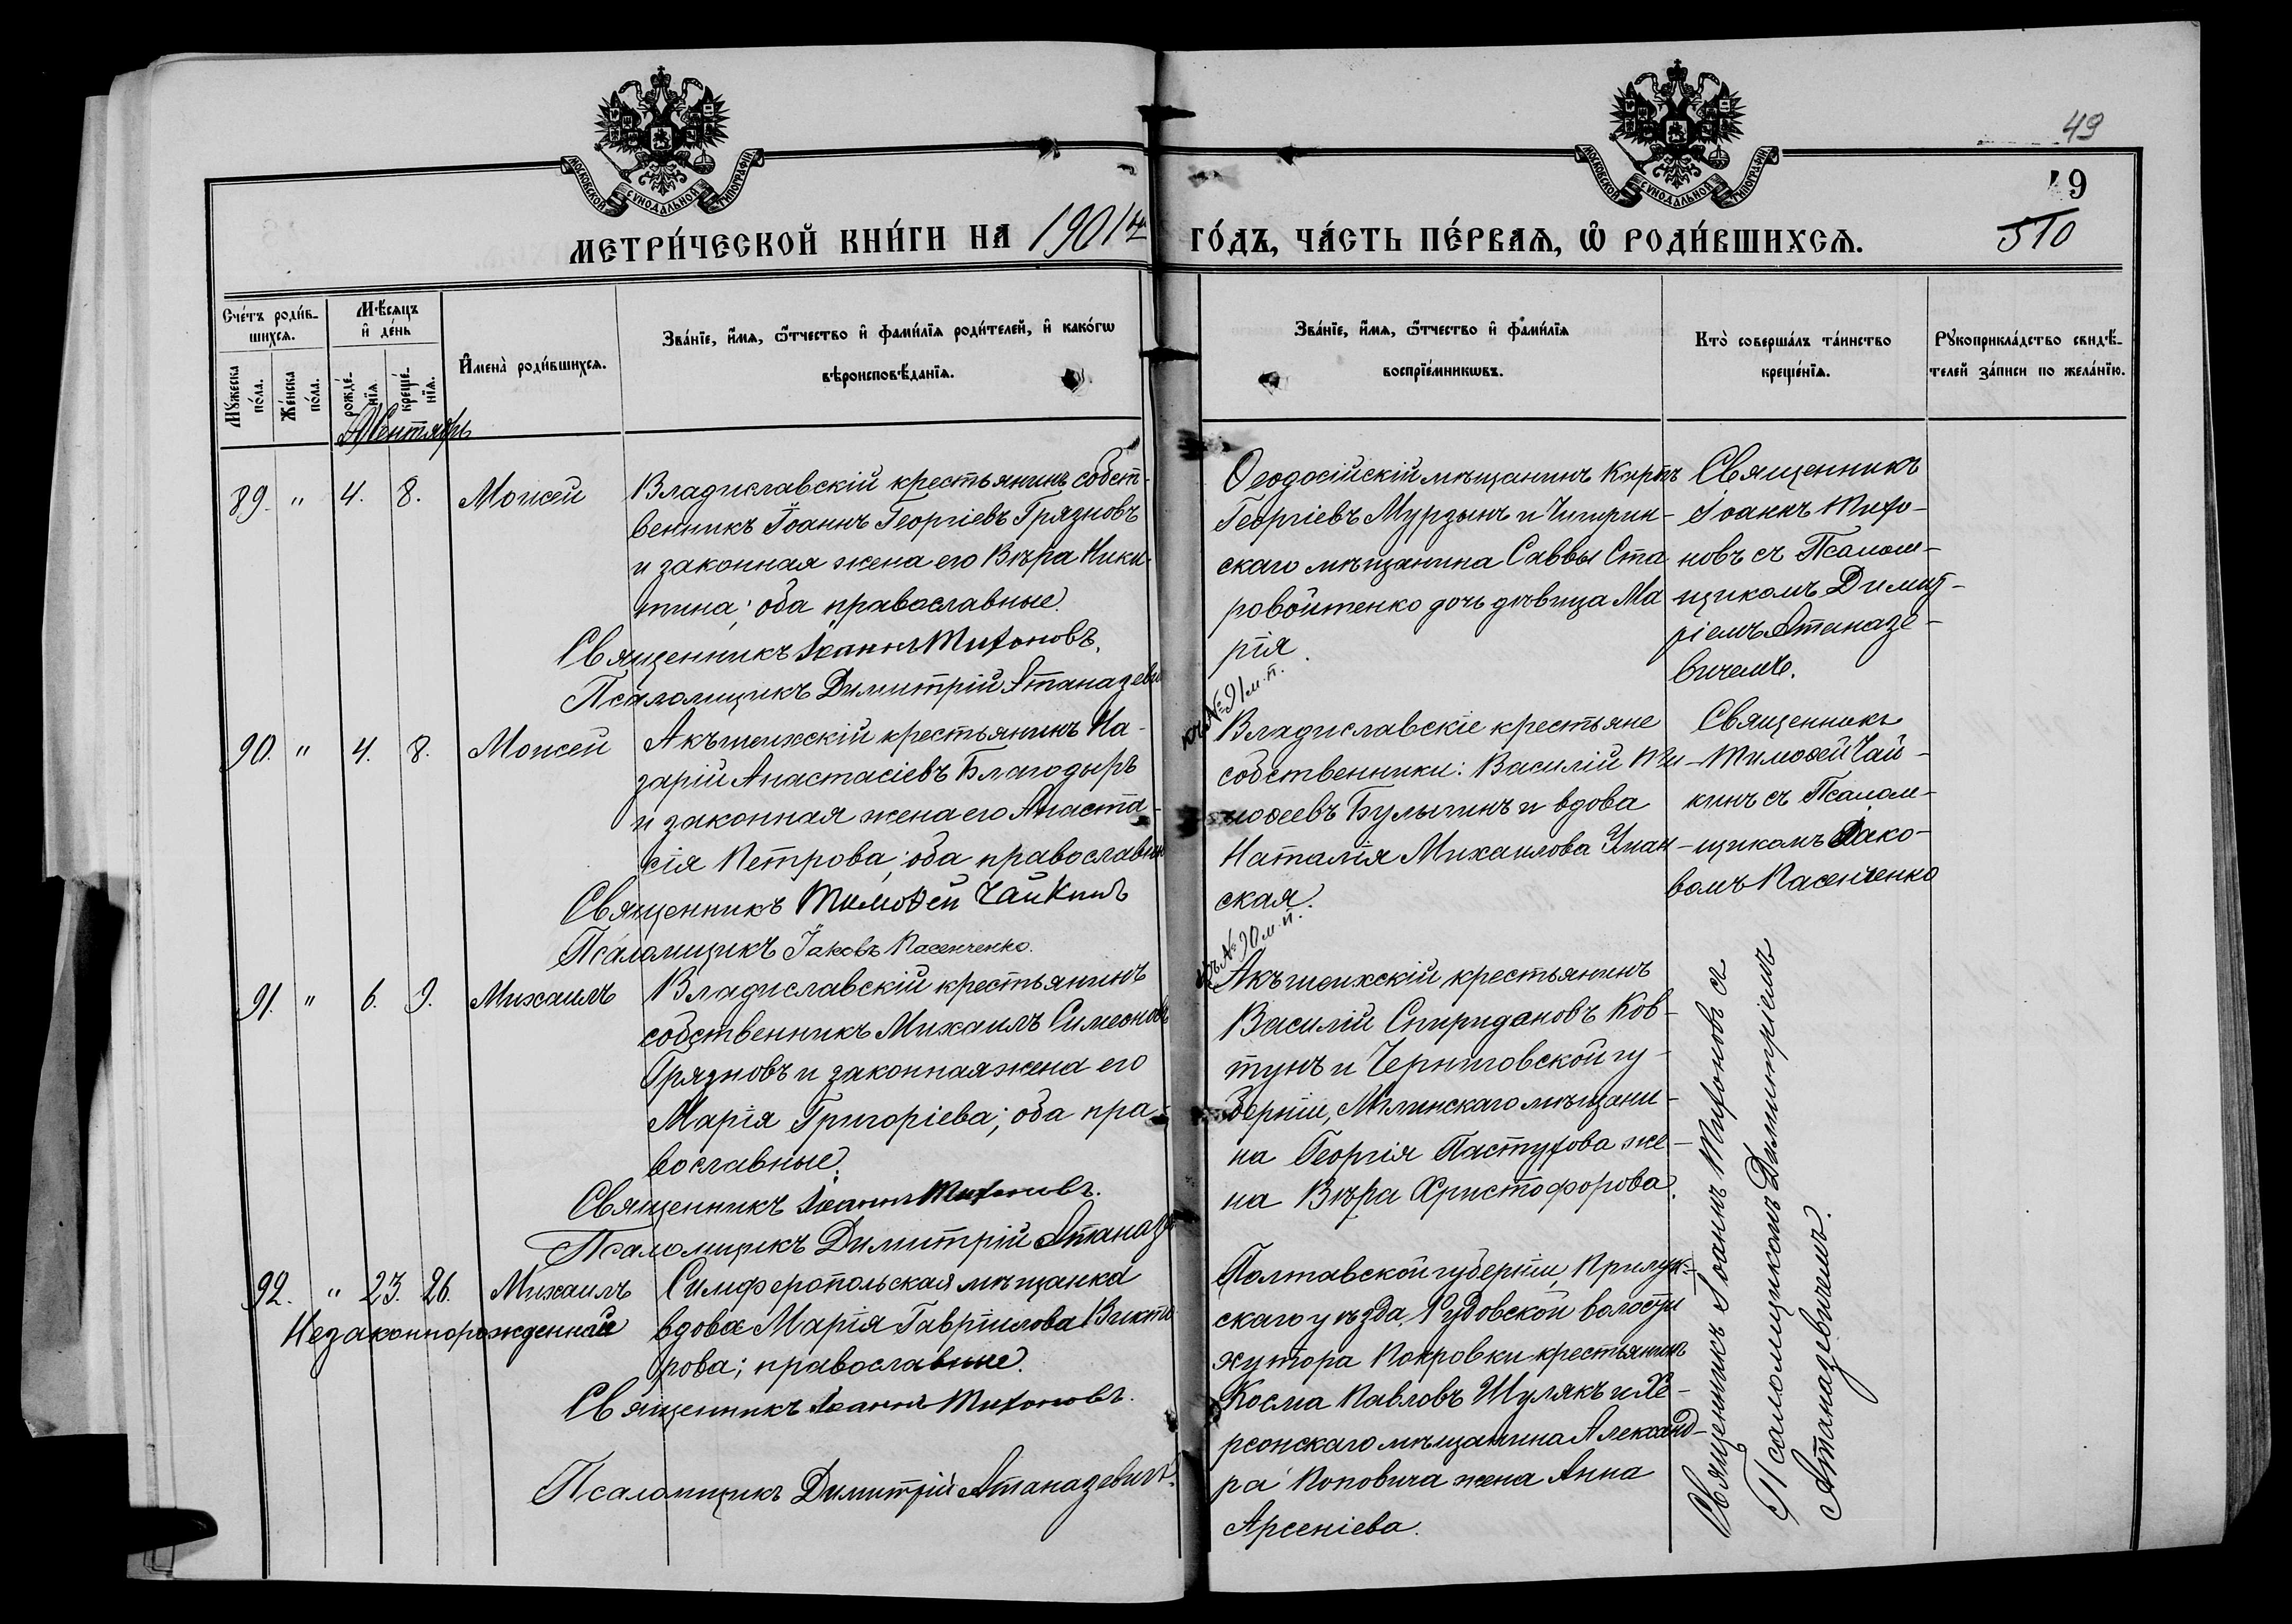 49
МОСКОВСКОЙ СѴНОДАЛЬНОЙ ТИПОГРАФІИ
МОСКОВСКОЙ СѴНОДАЛЬНОЙ ТИПОГРАФІИ
49
510
МЕТРИ́ЧЕСКОЙ КНИ́ГИ НА 1901й ГО́ДЪ, ЧА́СТЬ ПЕ́РВАЯ, Ѡ РОДИ́ВШИХСЯ.
Сче́тъ роди́в-
шихся.
Му́жеска по́ла.
Же́нска по́ла.
Мѣ́сяцъ
и҆ де́нь
рожде́-
нїя.
креще́-
нїя.
И҆мена̀ роди́вшихся.
Зва́нїе, и҆́мя, ѻ҆́тчество и҆ фами́лїя роди́телей, и҆ како́гѡ
вѣроисповѣ́данїя.
Зва́нїе, и҆́мя, ѻ҆́тчество и҆ фами́лїя
воспрїе́мникѡвъ.
Кто̀ соверша́лъ та́инство
креще́нїя.
Рꙋкоприкла́дство свидѣ́-
телей за́писи по жела́нїю.
Сентябрь
89. " 4. 8. Моисей
Владиславскій крестьянинъ собст-
венникъ Іоаннъ Георгіевъ Грязновъ
и законная жена его Вѣра Ники-
тина; оба православные.
Священникъ Іоаннъ Тихоновъ.
Псаломщикъ Димитрій Атаназеви
Ѳеодосійскій мѣщанинъ Карпъ
Георгіевъ Мурзынъ и Чигирин-
скаго мѣщанина Саввы Ста
ровойтенко дочь дѣвица Ма
рія.
Священникъ
Іоаннъ Тихо-
новъ съ Псалом-
щикомъ Димит-
ріемъ Атаназе-
вичемъ.
90. " 4. 8. Моисей
Акъшеихскій крестьянинъ На-
зарій Анастасіевъ Благодыръ
и законная жена его Анаста-
сія Петрова; оба православн
Священникъ Тимоѳей Чайкинъ
Псаломщикъ Іаковъ Пасенченко.
къ № 91 м. п.
Владиславскіе крестьяне
собственники: Василій Ти-
моѳеевъ Булыгинъ и вдова
Наталія Михаилова Уман-
ская.
Священникъ
Тимоѳей Чай-
кинъ съ Псалом-
щикомъ Іако-
вомъ Пасенченко
91. " 6. 9. Михаилъ
Владиславскій крестьянинъ
собственникъ Михаилъ Симеоновъ
Грязновъ и законная жена его
Марія Григоріева; оба пра-
вославные.
Священникъ Іоаннъ Тихоновъ.
Псаломщикъ Димитрій Атаназе
къ № 90 м. п.
Акъшеихскій крестьянинъ
Василій Спиридоновъ Ков-
тунъ и Черниговской гу-
берніи, Мглинскаго мѣщани-
на Георгія Пастухова же-
на Вѣра Христофорова.
92. " 23. 26. Михаилъ
Незаконнорожденный
Симферопольская мѣщанка
вдова Марія Гавріилова Викто
рова; православные.
Священникъ Іоаннъ Тихоновъ.
Псаломщикъ Димитрій Атаназевичъ.
Полтавской губерніи, Прилук-
скаго уѣзда, Рудовской волости
хутора Покровки крестьянинъ
Косма Павловъ Шулякъ и Хе-
рсонскаго мѣщанина Александ-
ра Поповича жена Анна
Арсеніева.
Священникъ Іоаннъ Тихоновъ съ
Псаломщикомъ Димитріемъ
Атаназевичемъ.